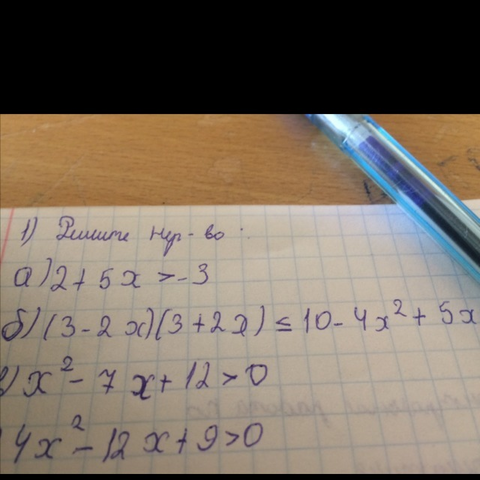 1) Решите нер-во:
а) 2 + 5x > -3
б) (3 - 2x)(3 + 2x) ≤ 10 - 4x² + 5x
в) x² - 7x + 12 > 0
4x² - 12x + 9 > 0